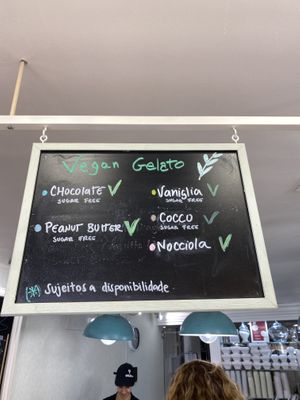 Vegan Gelato
CHOCOLATE ✓
SUGAR FREE
PEANUT BUTTER ✓
SUGAR FREE
Vaniglia ✓
SUGAR FREE
COCCO ✓
SUGAR FREE
Nocciola ✓
(*) Sujeitos a disponibilidade